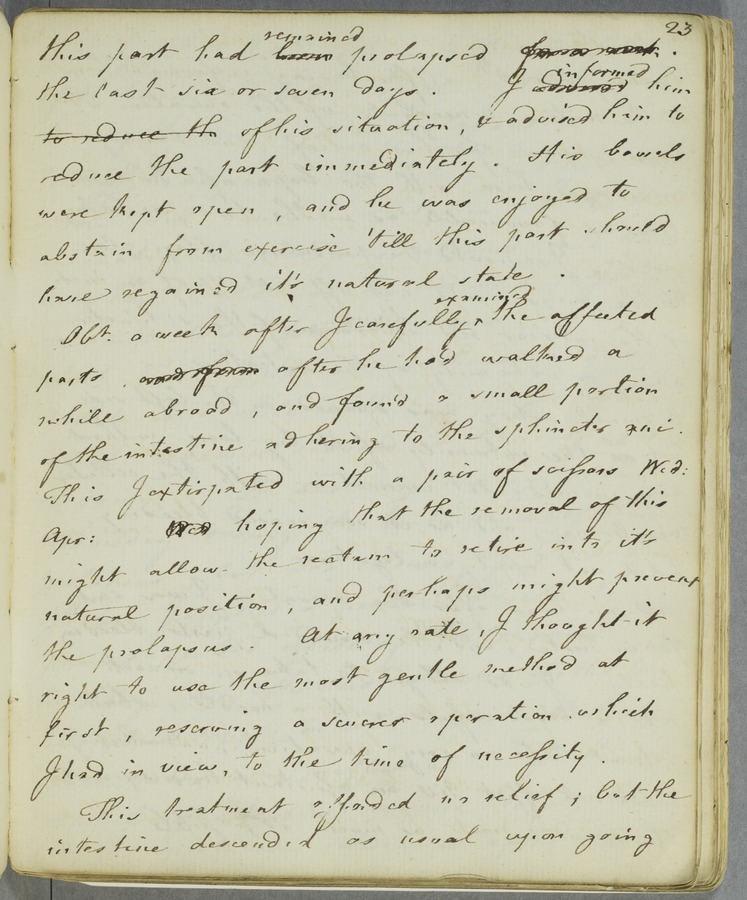 23
this part had remained been prolapsed
the last six or seven days. I informed advised him
to reduce th of his situation, & advised him to
reduce the part immediately. His bowels
were kept open, and he was enjoyed to
abstain from exercise 'till this part should
have regained it's natural state.
Abt. a week after I carefully examined the affected
parts and from after he had walked a
while abroad, and found a small portion
of the intestine adhering to the sphincter ani.
This I extirpated with a pair of scissors Wed:
Apr: Wed hoping that the removal of this
might allow the rectum to retire into it's
natural position, and perhaps might prevent
the prolapsus. At any rate, I thought it
right to use the most gentle method at
first, reserving a severer operation which
I had in view, to the time of necessity.
This treatment afforded no relief; but the
intestine descended as usual upon going